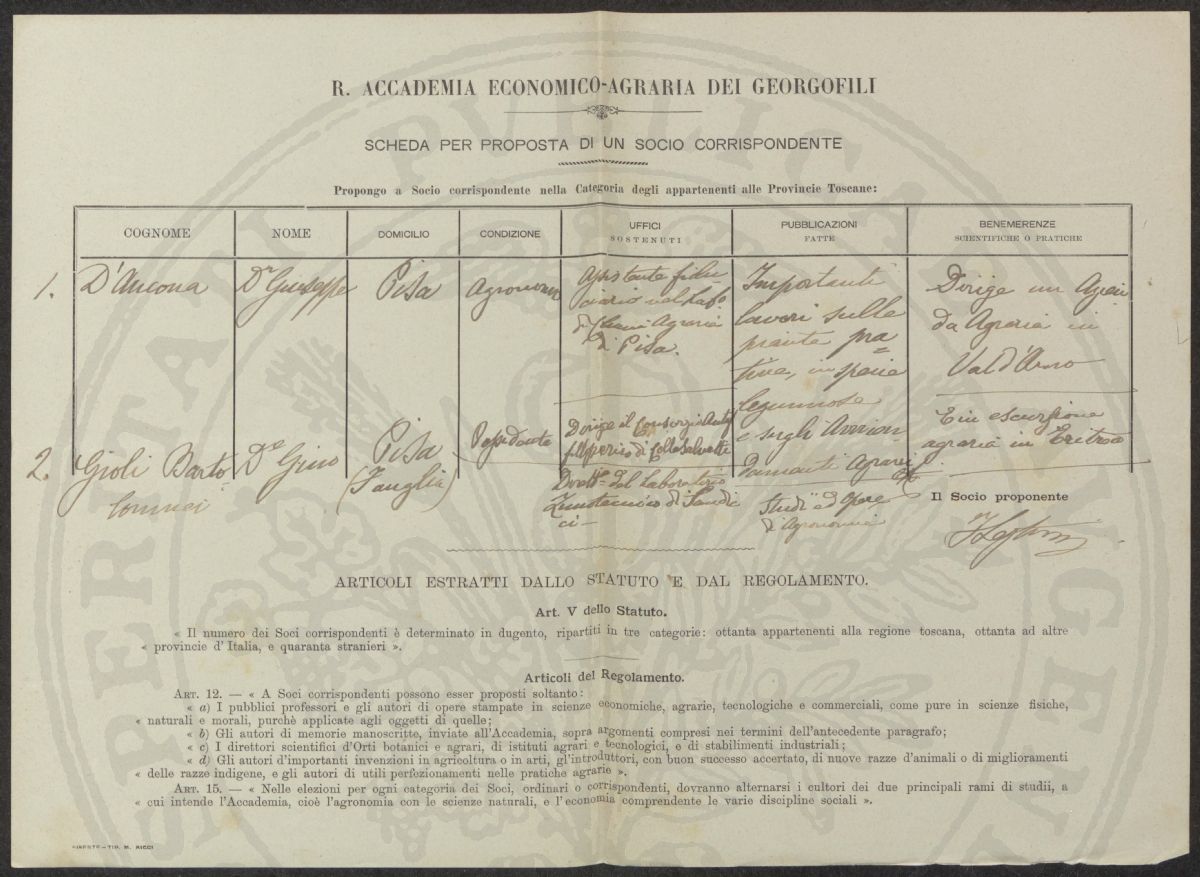 R. ACCADEMIA ECONOMICO-AGRARIA DEI GEORGOFILI
SCHEDA PER PROPOSTA DI UN SOCIO CORRISPONDENTE
Propongo a Socio corrispondente nella Categoria degli appartenenti alle Provincie Toscane:
COGNOME
NOME
DOMICILIO
CONDIZIONE
UFFICI
SOSTENUTI
PUBBLICAZIONI
FATTE
BENEMERENZE
SCIENTIFICHE O PRATICHE
1. D'Ancona
Dr Giuseppe
Pisa
Agronomo
di Pisa.
Importanti
lavori sulle
piante pra=
tive, in specie
leguminose
e sugli Avvicen-
damenti Agrari
Dirige un Azien
da Agraria in
Val d'Arno
2. Gioli Barto
lommei
De Gino
Pisa
(Fauglia)
Possidente
Dirige il Consorzio Anti
fillosserico di Collesalvetti
Dirett.re del Laboratorio
Zimotecnico di Pondi
ci -
Studi ed opere
di Agronomia
E in escursione
agraria in Eritrea
Il Socio proponente
ARTICOLI ESTRATTI DALLO STATUTO E DAL REGOLAMENTO.
Art. V dello Statuto.
« Il numero dei Soci corrispondenti è determinato in dugento, ripartiti in tre categorie: ottanta appartenenti alla regione toscana, ottanta ad altre
« provincie d'Italia, e quaranta stranieri ».
Articoli del Regolamento.
ART. 12. — « A Soci corrispondenti possono esser proposti soltanto:
« a) I pubblici professori e gli autori di opere stampate in scienze economiche, agrarie, tecnologiche e commerciali, come pure in scienze fisiche,
« naturali e morali, purchè applicate agli oggetti di quelle;
« b) Gli autori di memorie manoscritte, inviate all'Accademia, sopra argomenti compresi nei termini dell'antecedente paragrafo;
« c) I direttori scientifici d'Orti botanici e agrari, di istituti agrari e tecnologici, e di stabilimenti industriali;
« d) Gli autori d'importanti invenzioni in agricoltura o in arti, gl'introduttori, con buon successo accertato, di nuove razze d'animali o di miglioramenti
« delle razze indigene, e gli autori di utili perfezionamenti nelle pratiche agrarie ».
ART. 15. — « Nelle elezioni per ogni categoria dei Soci, ordinari o corrispondenti, dovranno alternarsi i cultori dei due principali rami di studii, a
« cui intende l'Accademia, cioè l'agronomia con le scienze naturali, e l'economia comprendente le varie discipline sociali ».
FIRENZE—TIP. M. RICCI